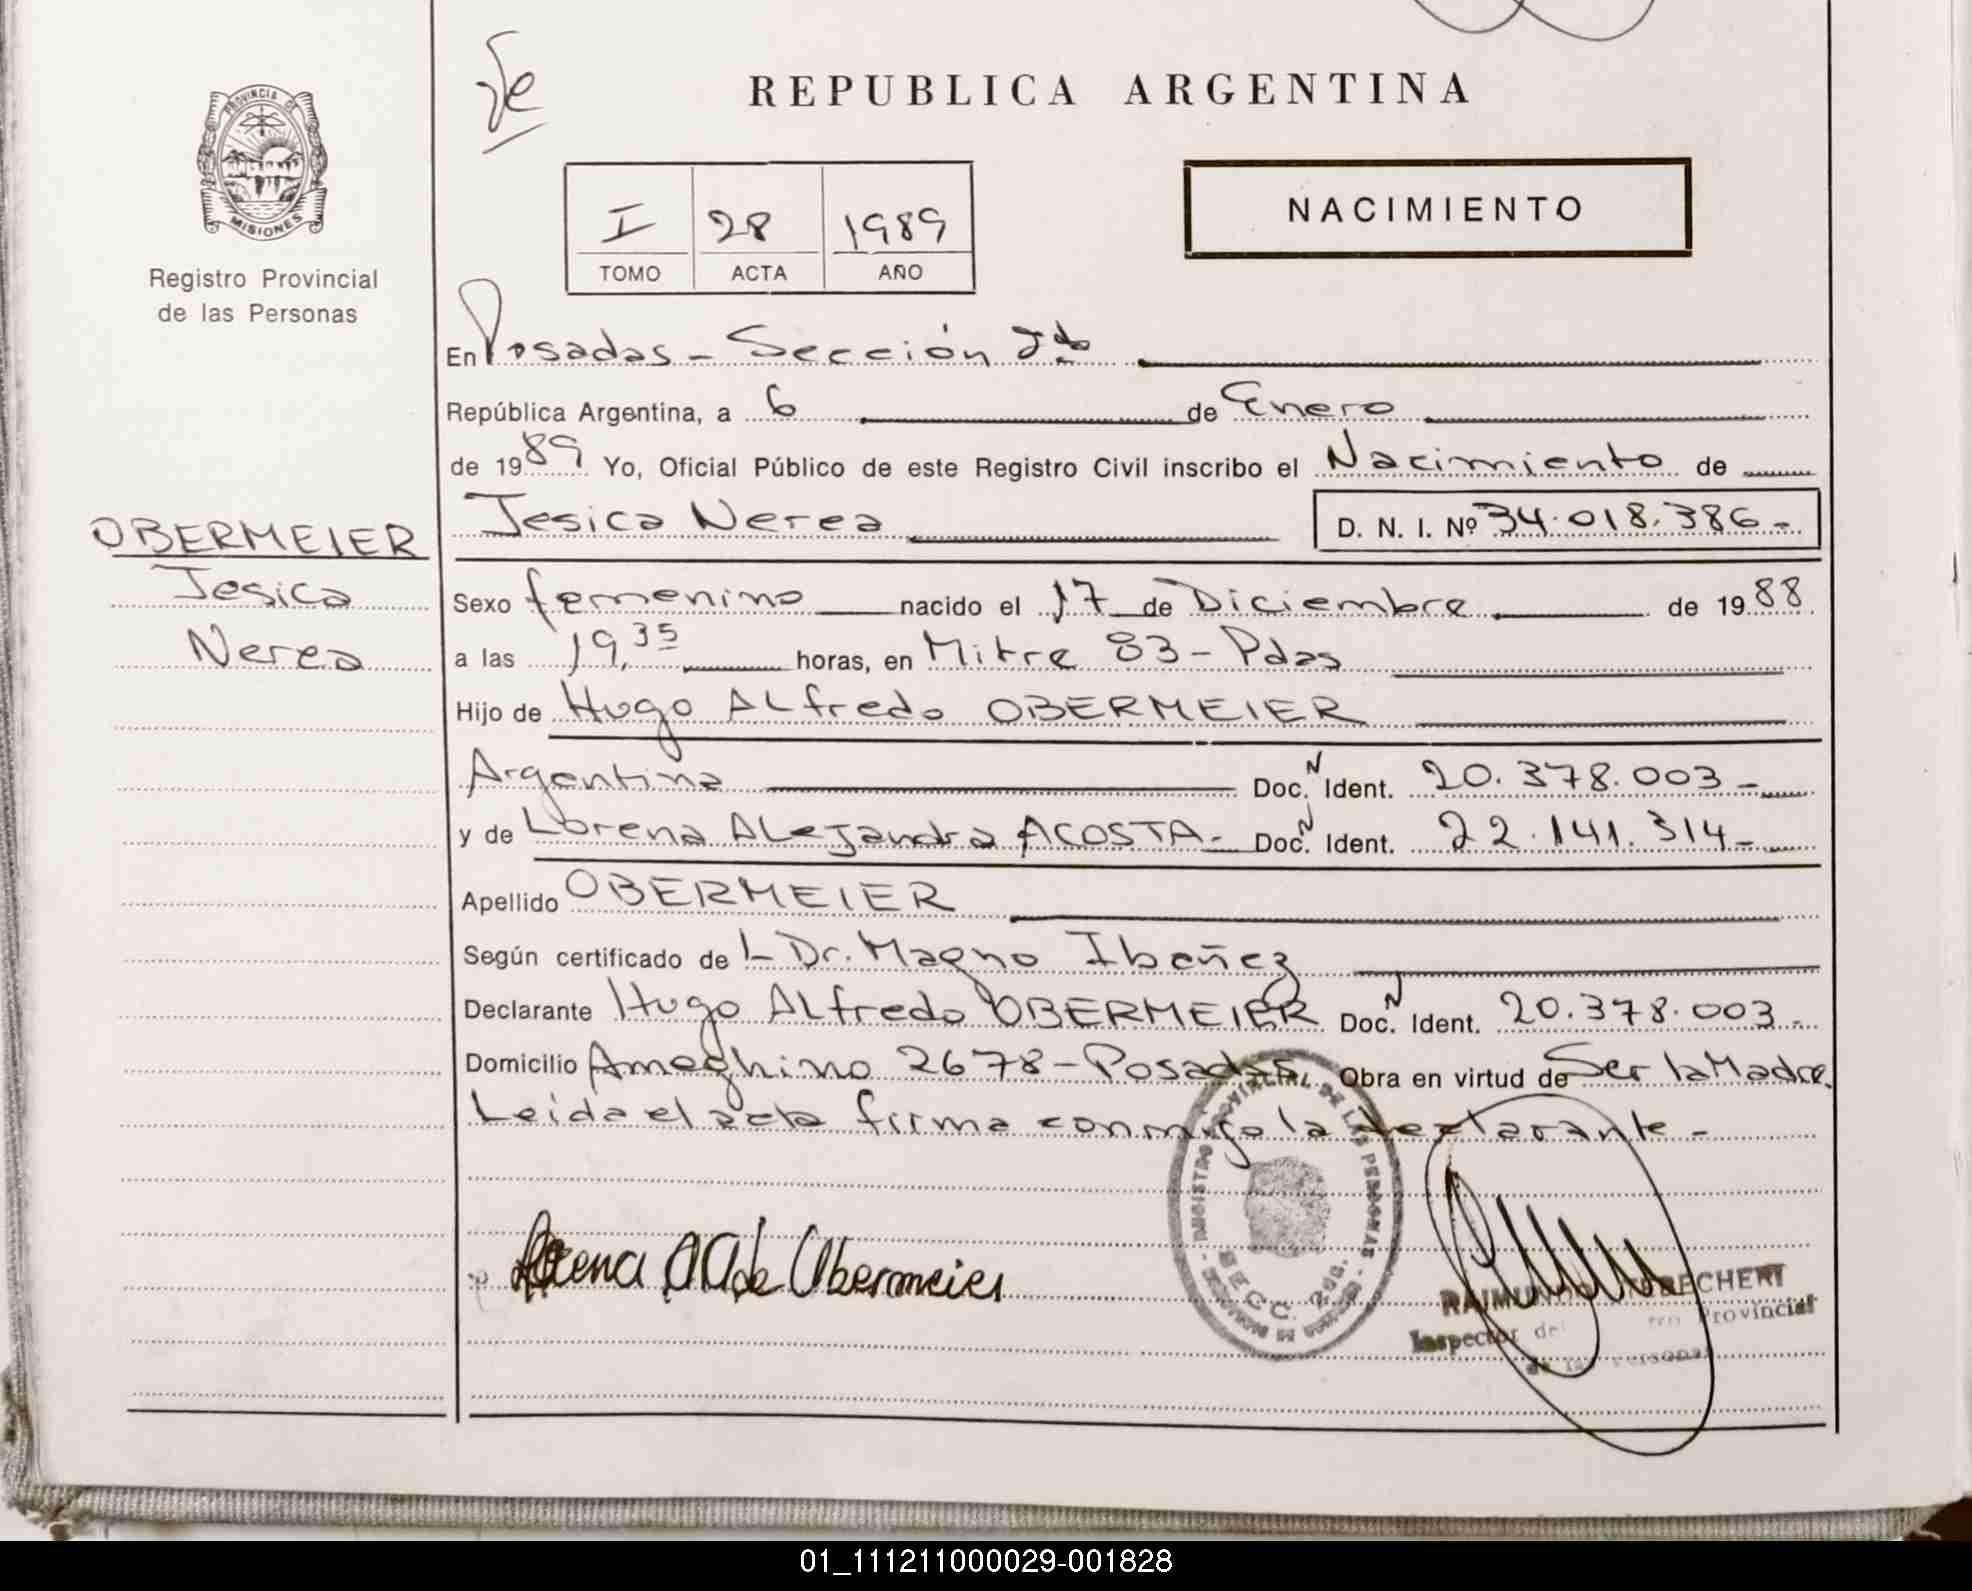 REPUBLICA ARGENTINA
PROVINCIA DE
MISIONES
Registro Provincial
de las Personas
NACIMIENTO
I 28 1989
TOMO ACTA AÑO
En Posadas - Sección 2da
República Argentina, a 6 de Enero
de 1989 Yo, Oficial Público de este Registro Civil inscribo el Nacimiento de
Jesica Nerea D. N. I. Nº 34.018.386.-
OBERMEIER
Jesica
Nerea
Sexo femenino nacido el 17 de Diciembre de 1988
a las 19,35 horas, en Mitre 83 - Pdas
Hijo de Hugo ALfredo OBERMEIER
Argentina Doc. N Ident. 20.378.003 -
y de Lorena ALejandra ACOSTA - Doc. N Ident. 22.141.314 -
Apellido OBERMEIER
Según certificado de L Dr. Magno Ibañez
Declarante Hugo ALfredo OBERMEIER Doc. N Ident. 20.378.003 -
Domicilio Ameghino 2678 - Posadas Obra en virtud de Ser la Madre.
Leída el acta firma conmigo la declarante -
Lorena A A de Obermeier
PROVINCIAL DE LAS PERSONAS
SECC. 2da.
RAIMUNDO
Inspector del Provincial
de las Personas
01_111211000029-001828